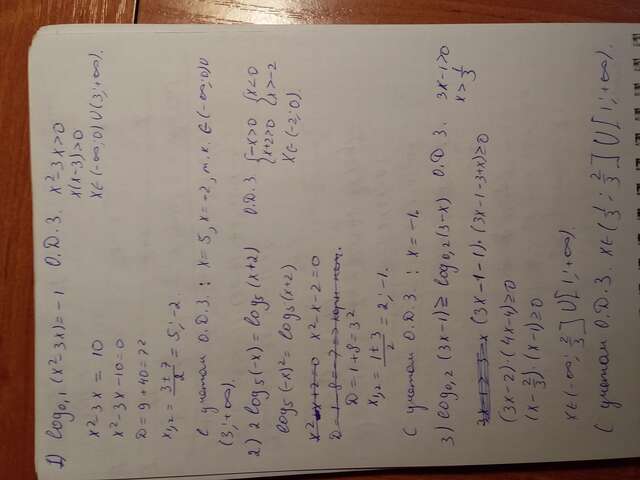 1) log₀,₁ (x²-3x) = -1 О.Д.З. x²-3x>0
x(x-3)>0
x²-3x = 10 x∈(-∞;0)∪(3;+∞).
x²-3x-10=0
D = 9+40=7²
x₁,₂ = (3±7)/2 = 5; -2.
С учетом О.Д.З. : x=5, x=-2, т.к. ∈(-∞;0)∪
(3;+∞).
2) 2 log₅(-x) = log₅(x+2) О.Д.З. {-x>0 {x<0
{x+2>0 {x>-2
log₅(-x)² = log₅(x+2) x∈(-2;0).
x²-x-2=0
D = 1+8=3²
x₁,₂ = (1±3)/2 = 2; -1.
С учетом О.Д.З. : x = -1.
3) log₀,₂ (3x-1) ≥ log₀,₂(3-x) О.Д.З. 3x-1>0
x>1/3
(3x-1-1)·(3x-1-3+x)≥0
(3x-2)·(4x-4)≥0
(x-2/3)·(x-1)≥0
x∈(-∞; 2/3]∪[1;+∞).
С учетом О.Д.З. x∈(1/3; 2/3]∪[1;+∞).